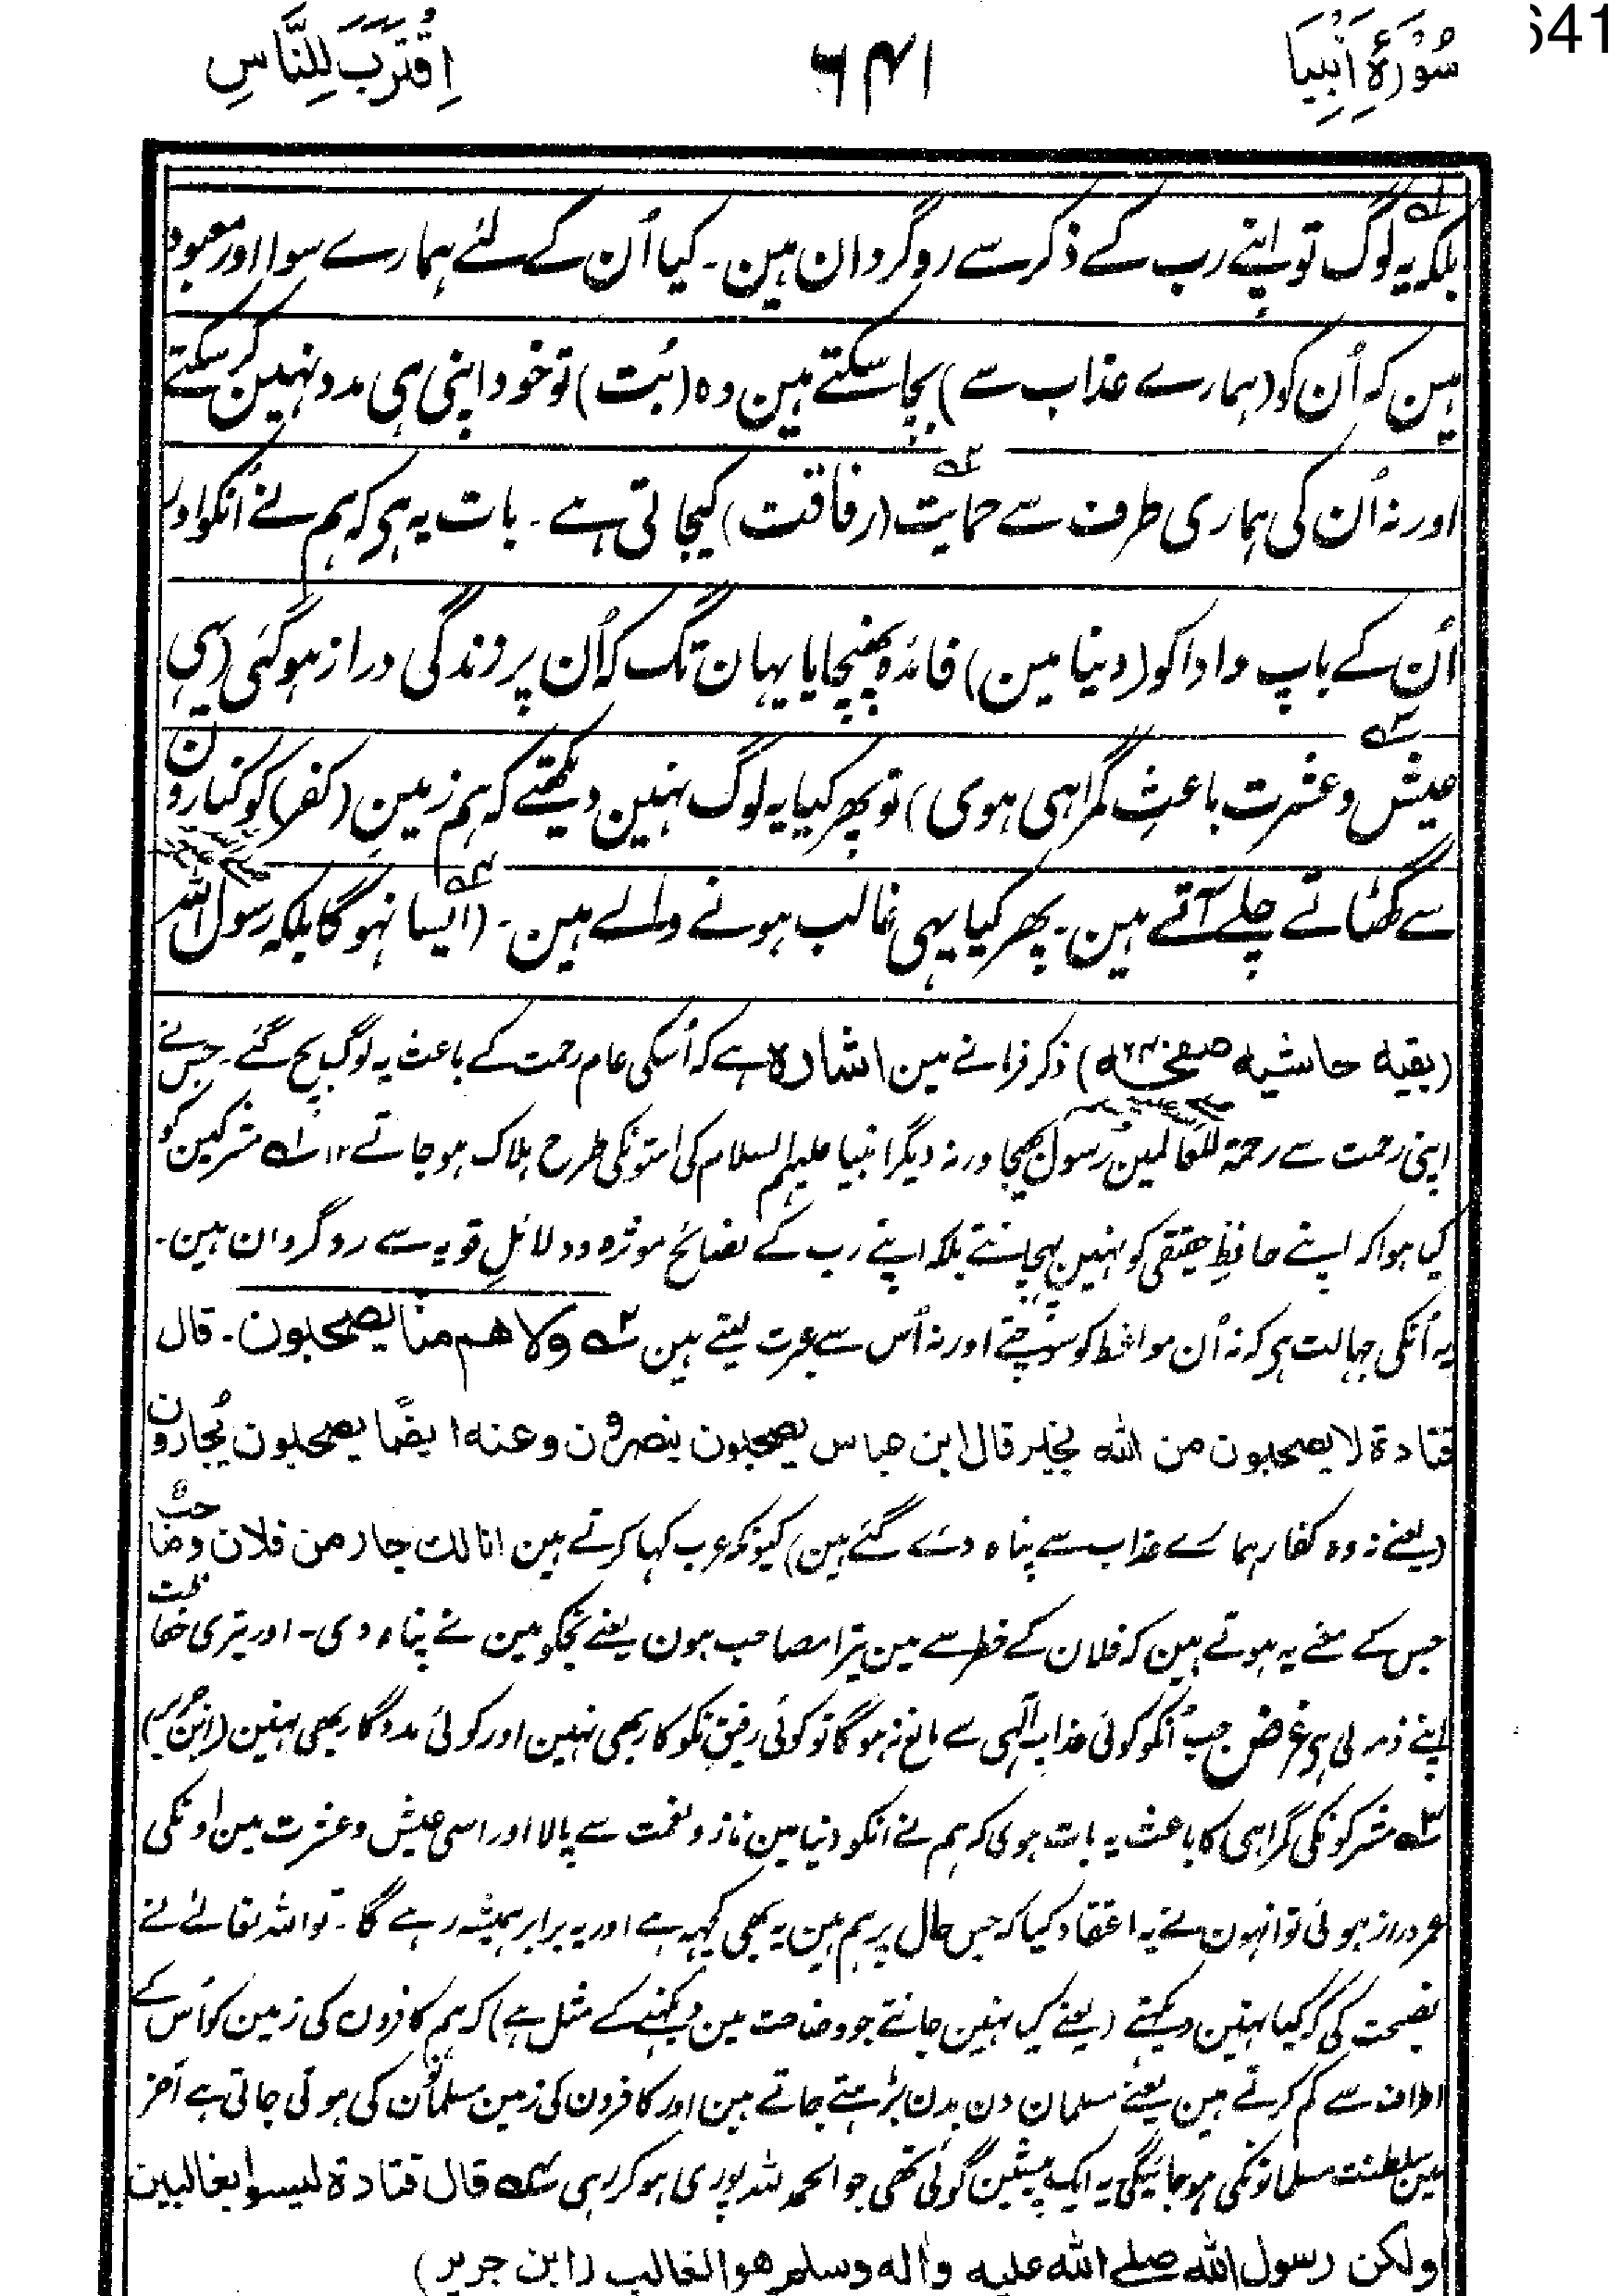 641
سُوْرَۂِ اَنْبِیَا ۶۴۱ اِقْتَرَبَ لِلنَّاسِ
بلکہ یہ لوگ تو اپنے رب کے ذکر سے روگردان ہین۔ کیا اُن کے لئے ہمارے سوا اور معبود
ہین کہ اُن کو (ہمارے عذاب سے) بچا سکتے ہین وہ (بُت) تو خود اپنی ہی مدد نہین کر سکتے
اور نہ اُن کی ہماری طرف سے حمایت (رفاقت) کیجاتی ہے۔ بات یہ ہی کہ ہم نے اُنکو اور
اُن کے باپ دادا کو (دنیا مین) فائدہ پہنچایا یہان تک کہ اُن پر زندگی دراز ہو گئی (یہی
عیش و عشرت باعثِ گمراہی ہوی) تو پھر کیا یہ لوگ نہین دیکھتے کہ ہم زمینِ (کفر) کو کنارون
سے گھٹاتے چلے آتے ہین۔ پھر کیا یہی غالب ہونے والے ہین۔ (ایسا نہوگا بلکہ رسول اللہ
(بقیہ حاشیہ صفحہ) ذکر فرمانے مین اشارہ ہے کہ اُسکی عام رحمت کے باعث یہ لوگ بچ گئے۔ جس نے
اپنی رحمت سے رحمۃ للعالمین رسول بھیجا ورنہ دیگر انبیا علیہم السلام کی امتونکی طرح ہلاک ہو جاتے ۱۲ ۱؎ مشرکین کو
کیا ہوا کہ اپنے حافظِ حقیقی کو نہین پہچانتے بلکہ اپنے رب کے نصائح موثرہ و دلائلِ قویہ سے روگردان ہین۔
یہ اُنکی جہالت ہی کہ نہ اُن مواعظ کو سونچتے اور نہ اُس سے عبرت لیتے ہین ۲؎ ولا هم منا يصحبون۔ قال
قتادة لا يصحبون من الله بخير قال ابن عباس يصحبون ينصرون وعنه ايضًا يصحبون يُجارون
(یعنے نہ وہ کفار ہمارے عذاب سے پناہ دئے گئے ہین) کیونکہ عرب کہا کرتے ہین انا لك جار من فلان وصاحب
جس کے معنے یہ ہوتے ہین کہ فلان کے خطر سے مین تیرا مصاحب ہون یعنے تجکو مین نے پناہ دی۔ اور تیری حفاظت
اپنے ذمہ لی ہی غرض جب اُنکو کوئی عذاب الٰہی سے مانع نہ ہو گا تو کوئی رفیق نکو کار بھی نہین اور کوئی مددگار بھی نہین (ابن جریر)
۳؎ مشرکونکی گمراہی کا باعث یہ بات ہوی کہ ہم نے انکو دنیا مین ناز و نعمت سے پالا اور اسی عیش و عشرت مین اونکی
عمر دراز ہوئی تو انہون نے یہ اعتقاد کیا کہ جس حال پر ہم ہین یہ بھی کچہہ ہے اور یہ برابر ہمیشہ رہے گا۔ تو اللہ تعالیٰ نے
نصیحت کی کہ کیا نہین دیکہتے (یعنے کیا نہین جانتے جو وضاحت مین دیکہنے کے مثل ہے) کہ ہم کافرون کی زمین کو اُس کے
اطراف سے کم کرتے ہین یعنے مسلمان دن بدن بڑہتے جاتے ہین اور کافرون کی زمین مسلمانون کی ہوتی جاتی ہے آخر
مین سلطنت مسلمانونکی ہو جائیگی یہ ایک پیشین گوئی تھی جو الحمد للہ پوری ہو کر رہی ۴؎ قال قتادة ليسوا بغالبين
ولكن رسول الله صلے الله عليه واٰله وسلم هو الغالب (ابن جرير)